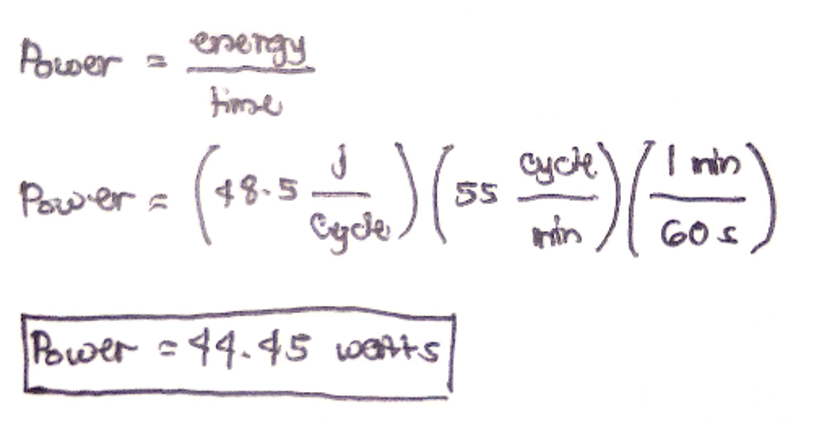 Power = energy / time
Power = (48.5 J / cycle) (55 cycle / min) (1 min / 60 s)
Power = 44.45 watts